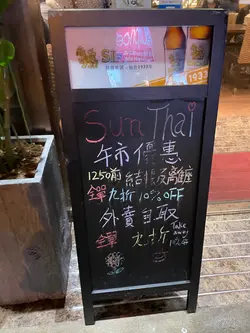 SINGHA
1933
Sun Thai
午市優惠
1250前結帳及離座
全單九折 10% OFF
外賣自取
全單 九折 Take away